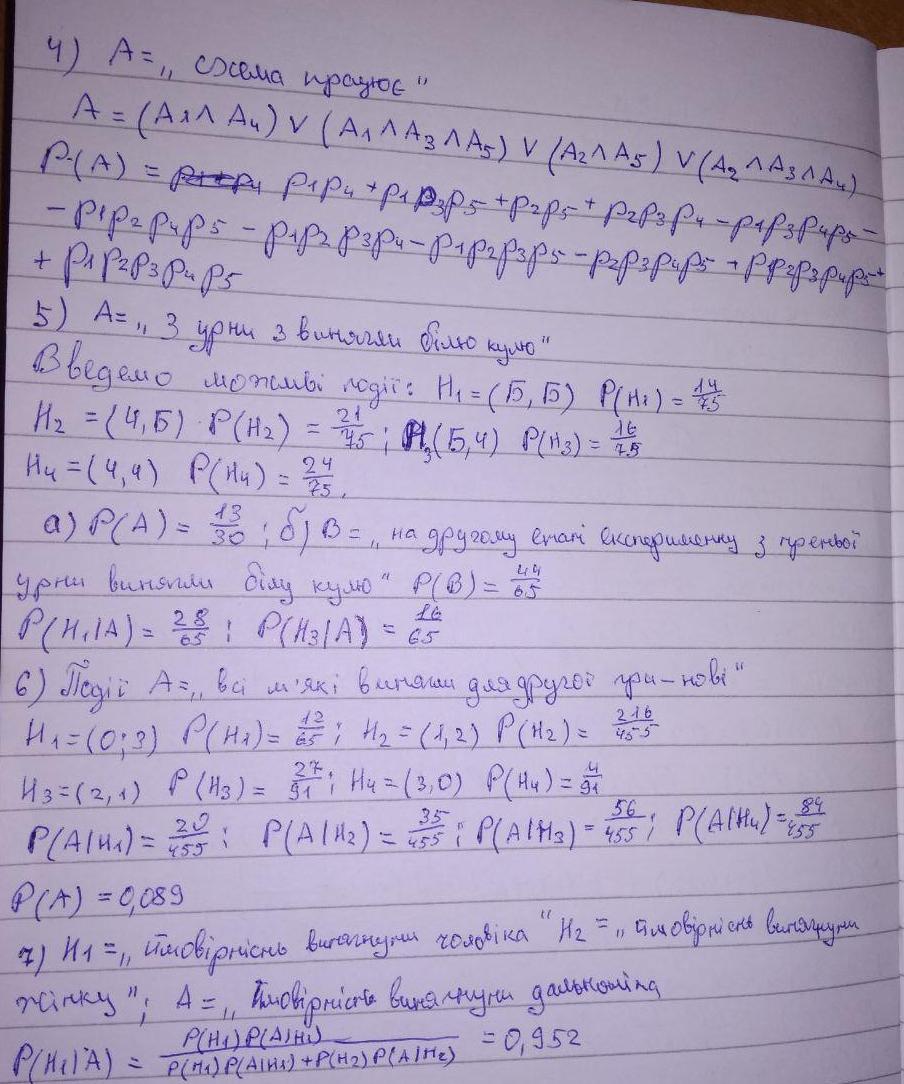 4) A = „ схема працює "
A = (A1 ∧ A4) ∨ (A1 ∧ A3 ∧ A5) ∨ (A2 ∧ A5) ∨ (A2 ∧ A3 ∧ A4)
P(A) = p1p4 + p1p3p5 + p2p5 + p2p3p4 - p1p3p4p5 -
- p1p2p4p5 - p1p2p3p4 - p1p2p3p5 - p2p3p4p5 + p1p2p3p4p5 +
+ p1p2p3p4p5
5) A = „ З урни 3 винягли білю кулю "
Введемо можливі події: H1 = (Б, Б) P(H1) = 14/75
H2 = (Ч, Б) P(H2) = 21/75 ; H3 (Б, Ч) P(H3) = 16/75
H4 = (Ч, Ч) P(H4) = 24/75 .
а) P(A) = 13/30 ; б) B = „ на другому етапі експерименту з третьої
урни винягли білу кулю " P(B) = 44/65
P(H1|A) = 28/65 ; P(H3|A) = 16/65
6) Події A = „ всі м'які виняли для другої гри - нові "
H1 = (0; 3) P(H1) = 12/65 ; H2 = (1, 2) P(H2) = 216/455
H3 = (2, 1) P(H3) = 27/91 ; H4 = (3, 0) P(H4) = 4/91
P(A|H1) = 20/455 ; P(A|H2) = 35/455 ; P(A|H3) = 56/455 ; P(A|H4) = 84/455
P(A) = 0,089
7) H1 = „ ймовірність витягнути чоловіка " H2 = „ ймовірність витягнути
жінку " ; A = „ Ймовірність витягнути дальтоніка
P(H1|A) = P(H1)P(A|H1) / P(H1)P(A|H1) + P(H2)P(A|H2) = 0,952